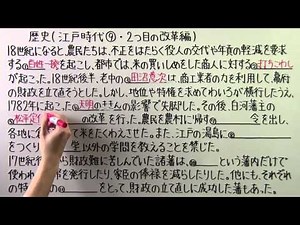 歴史(江戸時代⑨・2つ目の改革編)
18世紀になると、農民たちは、不正をはたらく役人の交代や年貢の軽減を要求
する①百姓一揆を起こし、都市では、米の買いしめをした商人に対する②打ちこわし
が起こった。18世紀後半、老中の③田沼意次は、商工業者の力を利用して、幕府
の財政を立て直そうとした。しかし、地位や特権を求めてわいろが横行したうえ、
1782年に起こった④天明のききんの影響で失脚した。その後、白河藩主の
⑤松平定 の改革を行った。農民を農村に帰す 令を出し、
各地に 米をたくわえさせた。また、江戸の湯島に
をつくり 学以外の学問を教えることを禁じた。
17世紀後 財政難に苦しんでいた諸藩は、 という藩内だけで
使わ 発行したり、家臣の俸禄を減らしたりした。他にも、それぞれ
の特 をとって、財政の立て直しに成功した藩もあった。